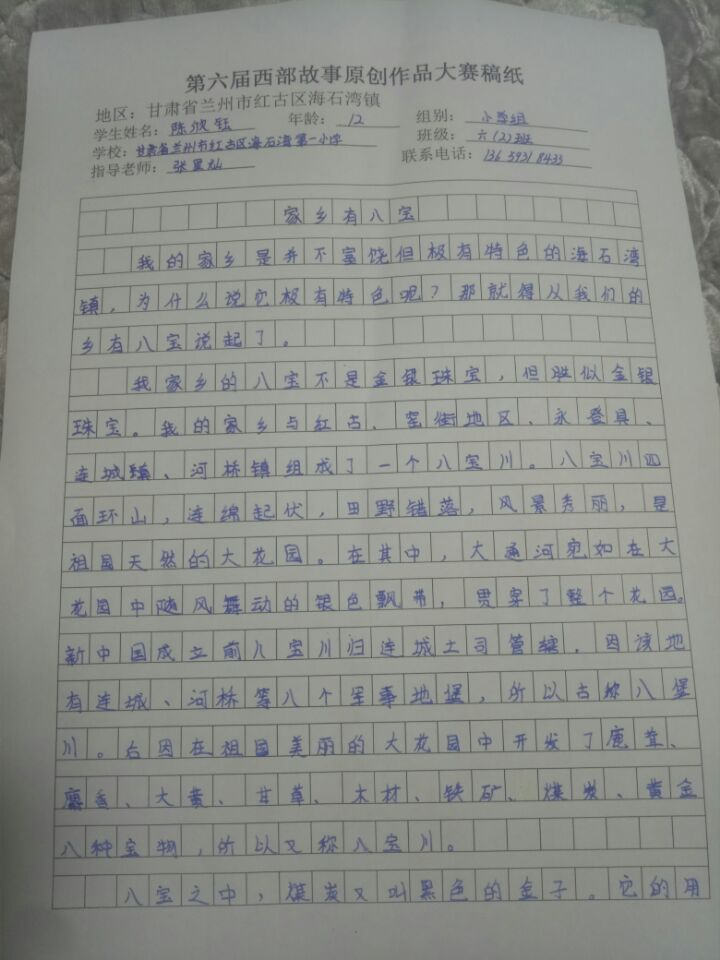 第六届西部故事原创作品大赛稿纸
地区：甘肃省兰州市红古区海石湾镇
学生姓名：陈欣钰 年龄：12 组别：小学组
学校：甘肃省兰州市红古区海石湾第一小学 班级：六（2）班
指导老师：张星灿 联系电话：136 5931 8433
家乡有八宝
我的家乡是并不富饶但极有特色的海石湾
镇，为什么说它极有特色呢？那就得从我们的
乡有八宝说起了。
我家乡的八宝不是金银珠宝，但胜似金银
珠宝。我的家乡与红古、窑街地区、永登县、
连城镇、河桥镇组成了一个八宝川。八宝川四
面环山，连绵起伏，田野错落，风景秀丽，是
祖国天然的大花园。在其中，大通河宛如在大
花园中随风舞动的银色飘带，贯穿了整个花园。
新中国成立前八宝川归连城土司管辖，因该地
有连城、河桥等八个军事地堡，所以古称八堡
川。后因在祖国美丽的大花园中开发了鹿茸、
麝香、大黄、甘草、木材、铁矿、煤炭、黄金
八种宝物，所以又称八宝川。
八宝之中，煤炭又叫黑色的金子。它的用